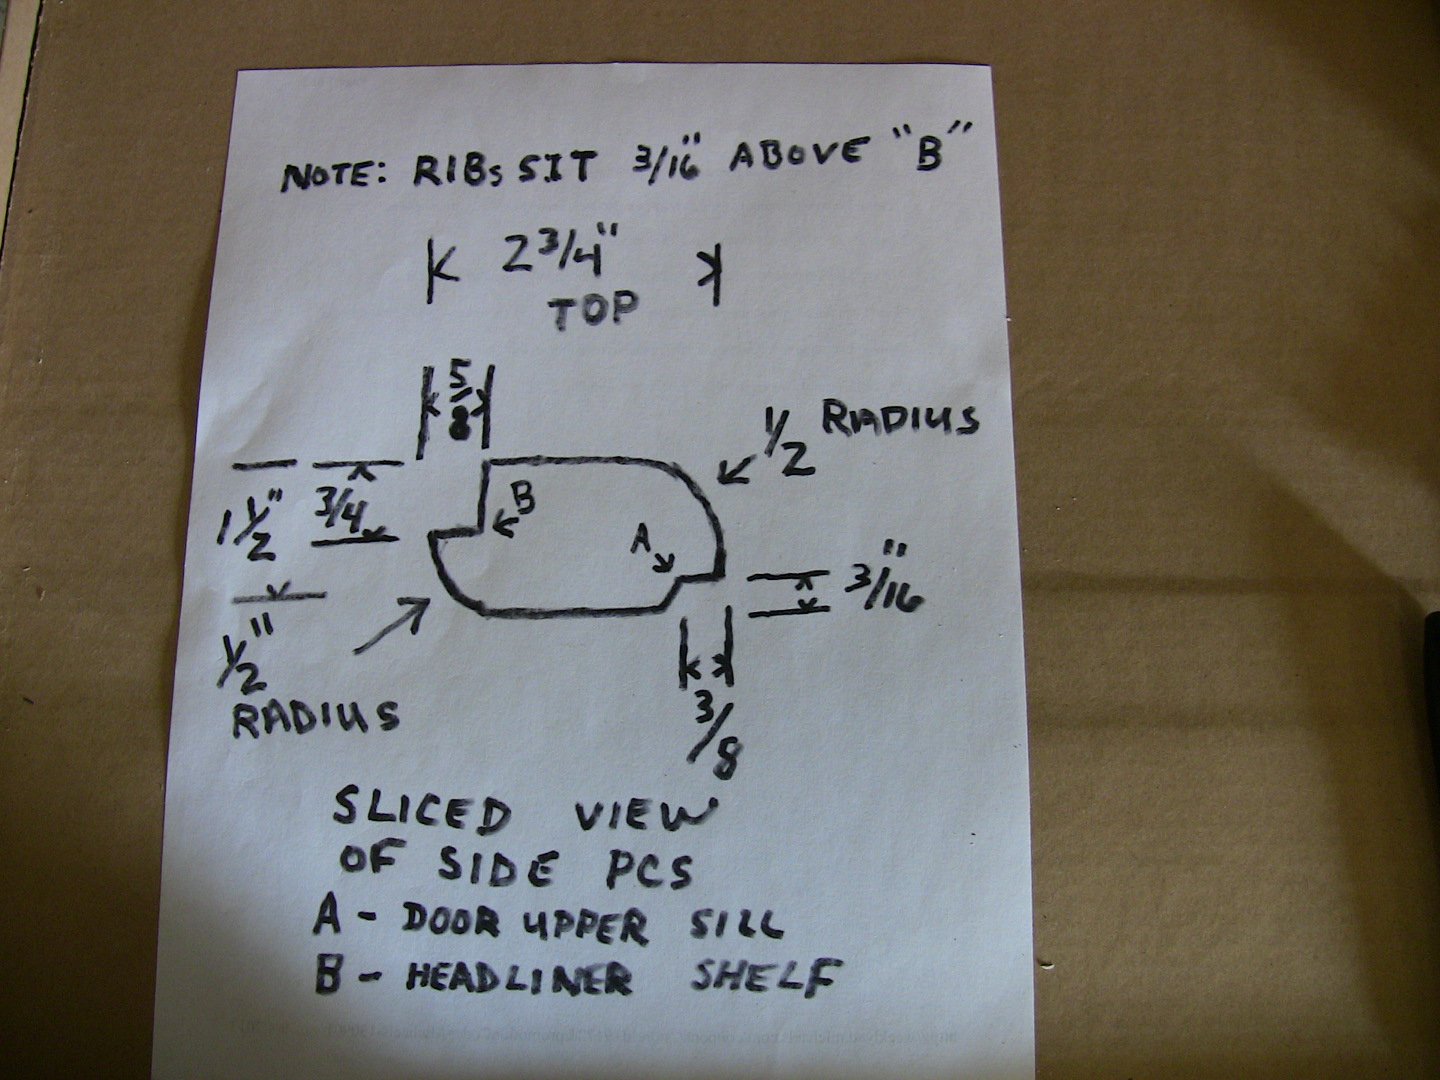 NOTE: RIBs SIT 3/16" ABOVE "B"
2 3/4"
TOP
5/8
1/2 RADIUS
1 1/2"
3/4
B
A
3/16"
1/2"
RADIUS
3/8
SLICED VIEW
OF SIDE PCS
A - DOOR UPPER SILL
B - HEADLINER SHELF